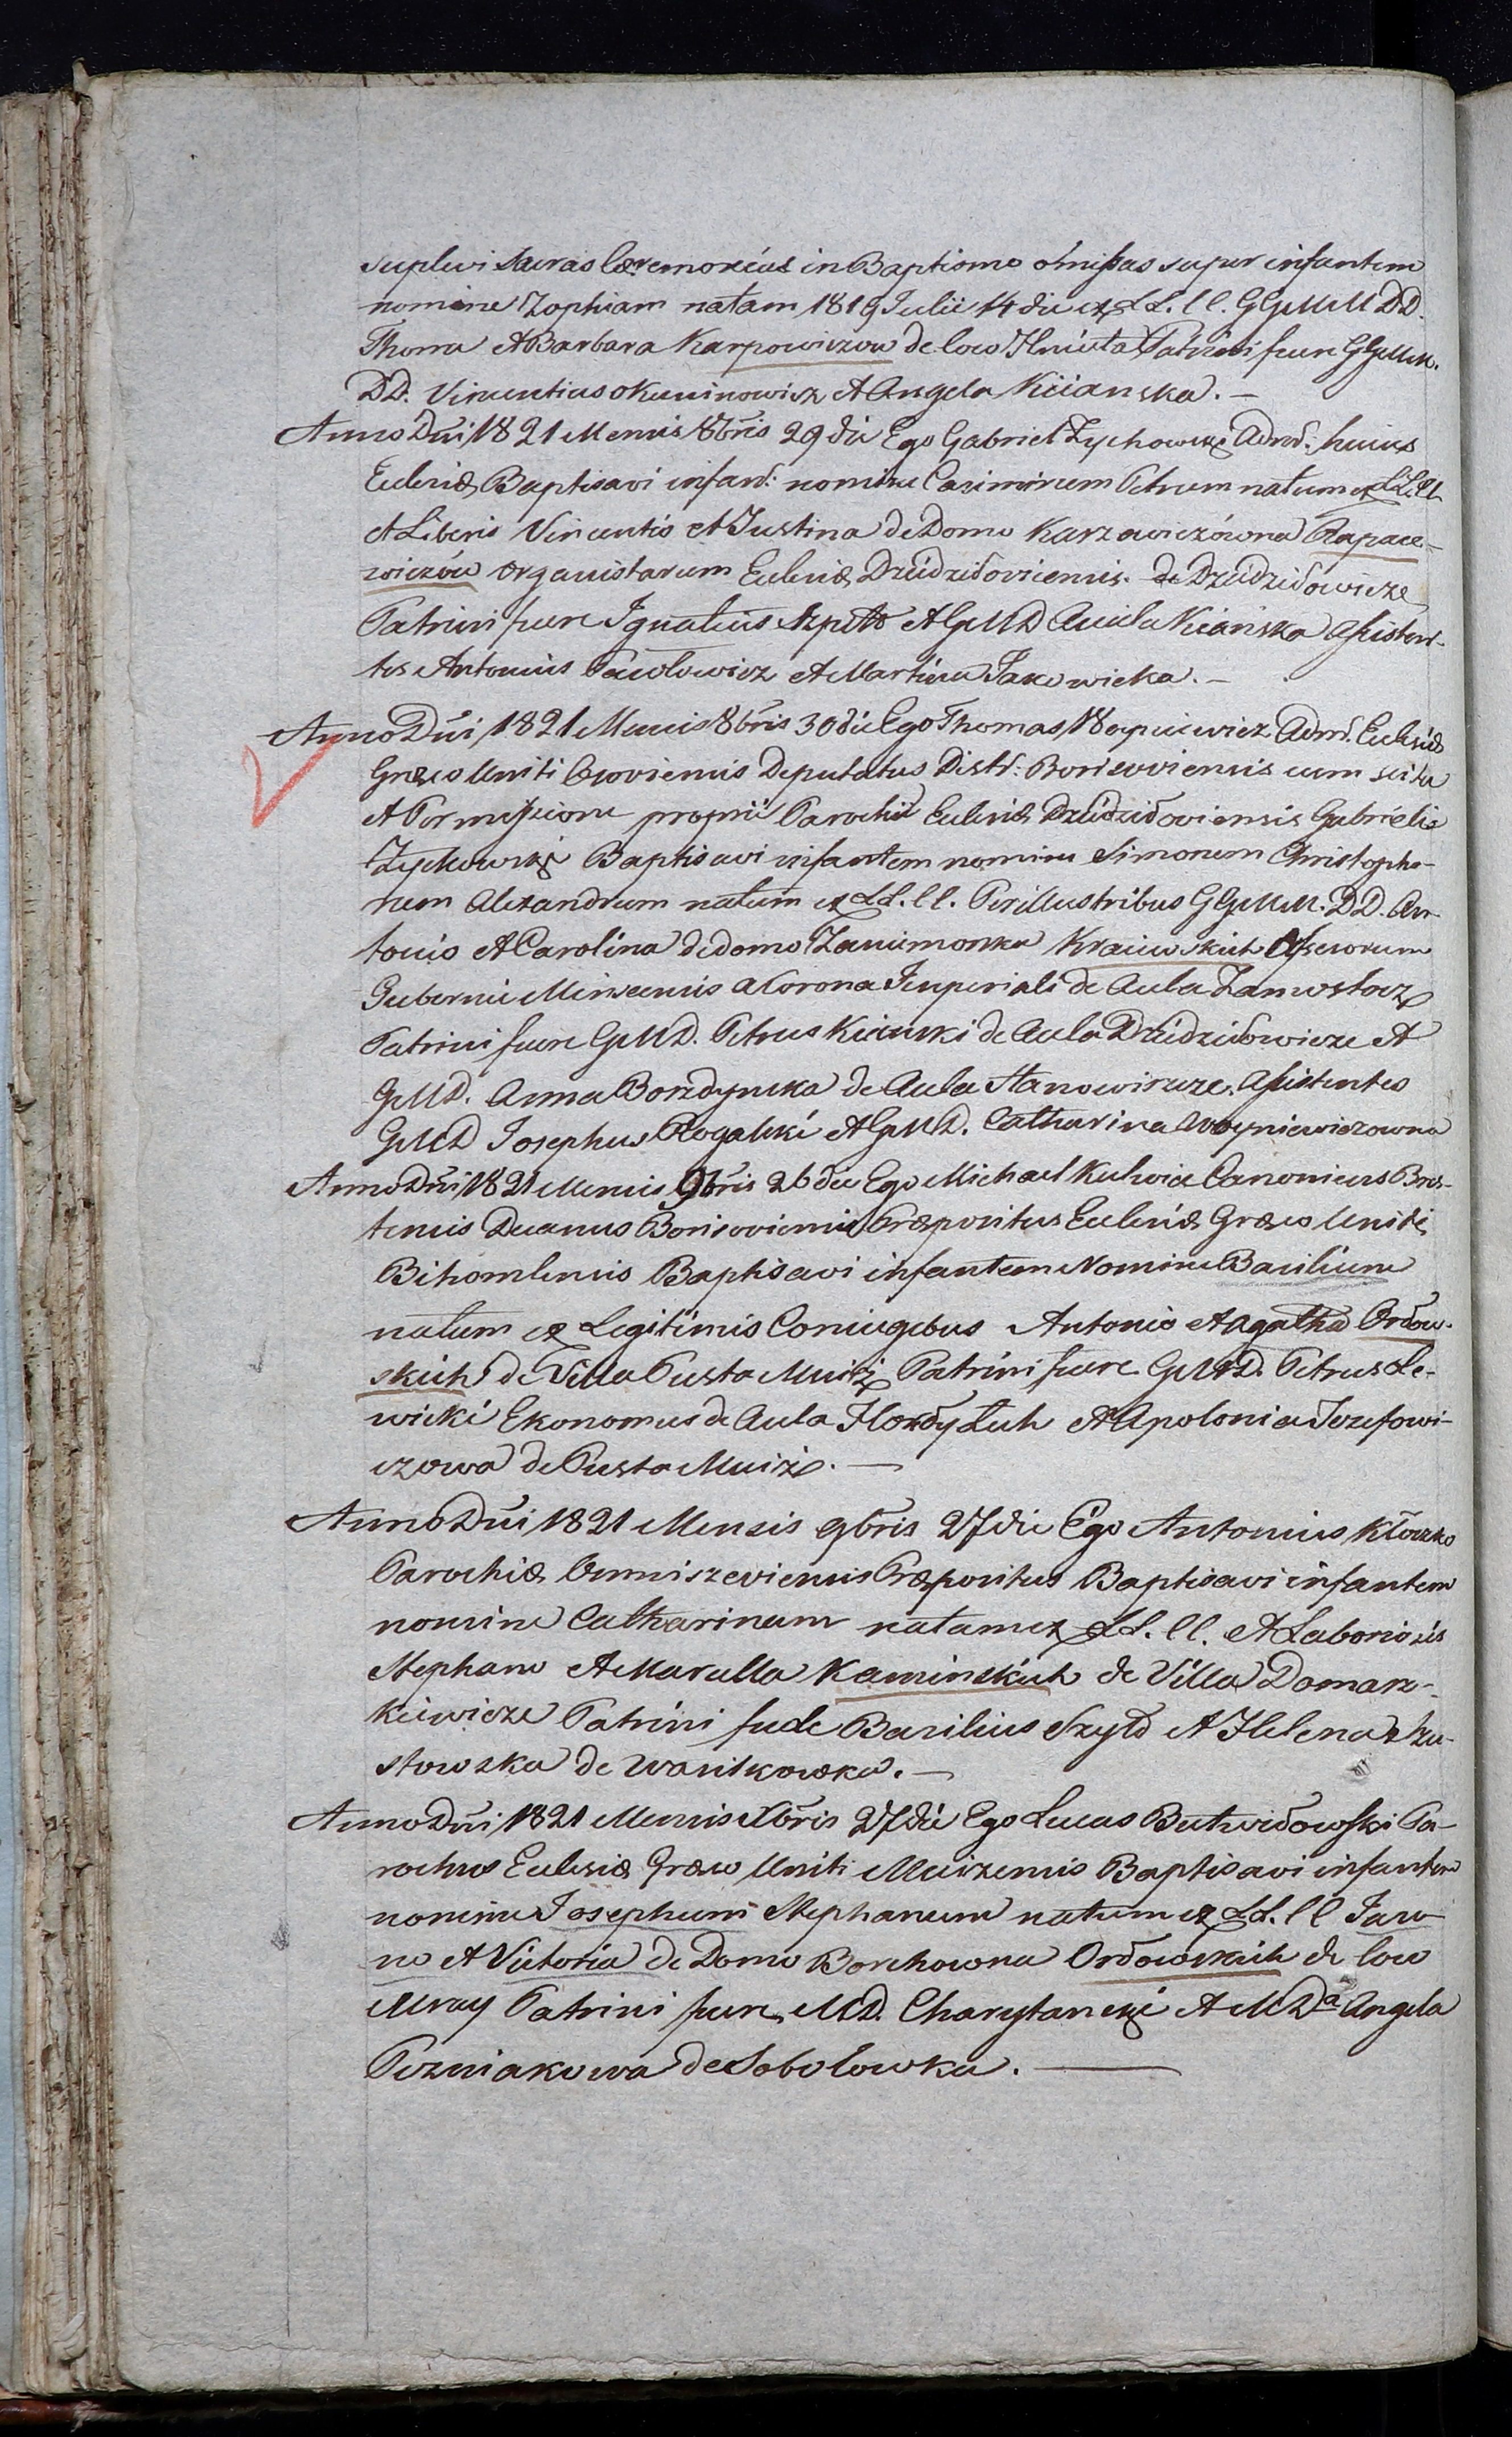 suplevi sacras Cæremonias in Baptismo omissas super infantem
nomine Zophiam natam 1819 Julii 14 die ex LL. CC. GGMM DD.
Thoma et Barbara Karpowiczow de loco Hnieuta Patrini fuere GGMM.
DD. Vincentius Okuninowicz et Angela Kiianska. —
Anno Dni 1821 Mensis 8bris 29 die Ego Gabriel Zychowski Admr: huius
Eclesiæ Baptisavi infant: nomine Casimirum Petrum natum ex LL. CC.
et Liberis Vincentio et Justina de Domo Karzewiczówna Rapace-
wiczów organistarum Eclesiæ Dziedziłoviensis. de Dziedziłowicze
Patrini fuere Ignatius Szpitt et GMD Aniela Kiańska Assisten-
tes Antonius Pawłowicz et Martina Jakowicka. —
Anno Dni 1821 Mensis 8bris 30 die Ego Thomas Adm. Eclesiæ
Græco Uniti Deputatus Distr: Borisoviensis cum scitu
et Permissione proprii Parochi Eclesiæ Dziedziłoviensis Gabrielis
Zychowski Baptisavi infantem nomine Simonem Christopho-
rum Alexandrum natum ex LL. CC. Perillustribus GGMM. DD. An-
tonio et Carolina de domo Zaniemonska Kraiewskich Assesorum
Gubernii Minscensis a Corona Imperiali de Aula Zamostocze
Patrini fuere GMD. Petrus Kiianski de Aula Dziedziłowicze et
GMD. Anna Borzdynska de Aula Stanowiszcze. Assistentes
GMD Josephus Rogalski et GMD. Catharina Woyniewiczowna
Anno Dni 1821 Mensis 9bris 26 die Ego Michael Kulwiec Canonicus Bres-
tensis Decanus Borisoviensis Præpositus Eclesiæ Græco Unitæ
Bihomlensis Baptisavi infantem Nomine Basilium
natum ex Legitimis Coniugebus Antonio et Agatha Ordow-
skich de Villa Pusta Muiż Patrini fuere GMD. Petrus Le-
wicki Ekonomus de Aula Hordy Luh et Apolonia Jozefowi-
czowa de Pusta Muiż. —
Anno Dni 1821 Mensis 9bris 27 die Ego Antonius Kłoczko
Parochiæ Omniszeviensis Præpositus Baptisavi infantem
nomine Catharinam natam ex LL. CC. et Laboriosis
Stephano et Marulla Kaminskich de Villa Domasz-
kiewicze Patrini fuere Basilius Szyło et Helena Szu-
stowska de Wanitkowska. —
Anno Dni 1821 Mensis Xbris 27 die Ego Lucas Butwidowski Pa-
rochus Eclesiæ Græco Uniti Muiżensis Baptisavi infantem
nomine Josephum Stephanum natum ex LL. CC Jaro-
no et Victoria de Domo Borchowna Ordowskich de loco
Mray Patrini fuere MD. Charytanski et MDa Angela
Pozniakowa de Sobolowka. —